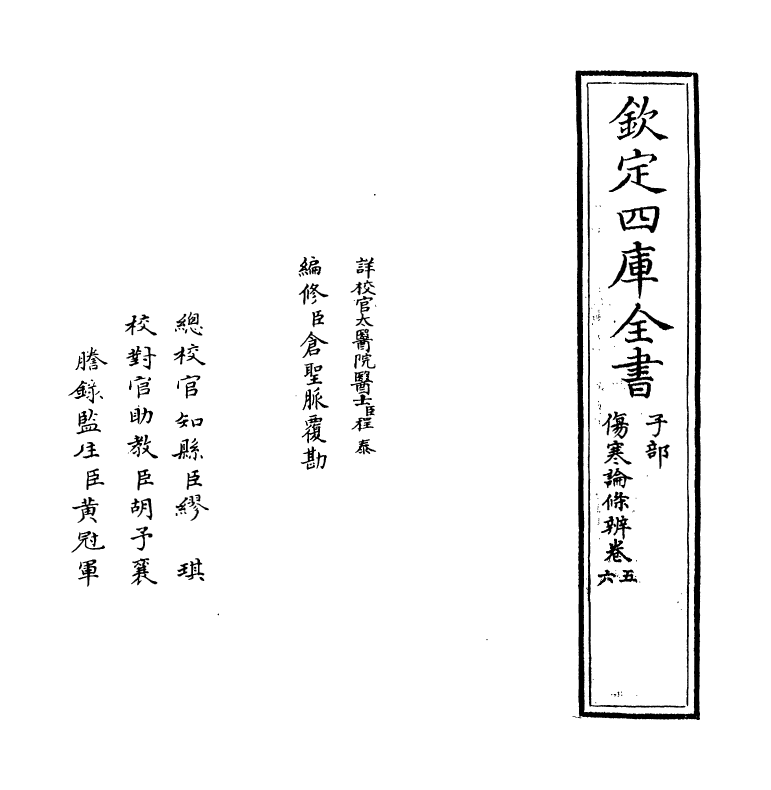 欽定四庫全書
子部
傷寒論條辨卷五六
詳校官太醫院醫士臣程泰
編修臣倉聖脈覆勘
總校官知縣臣繆琪
校對官助教臣胡予襄
謄錄監生臣黃冠軍